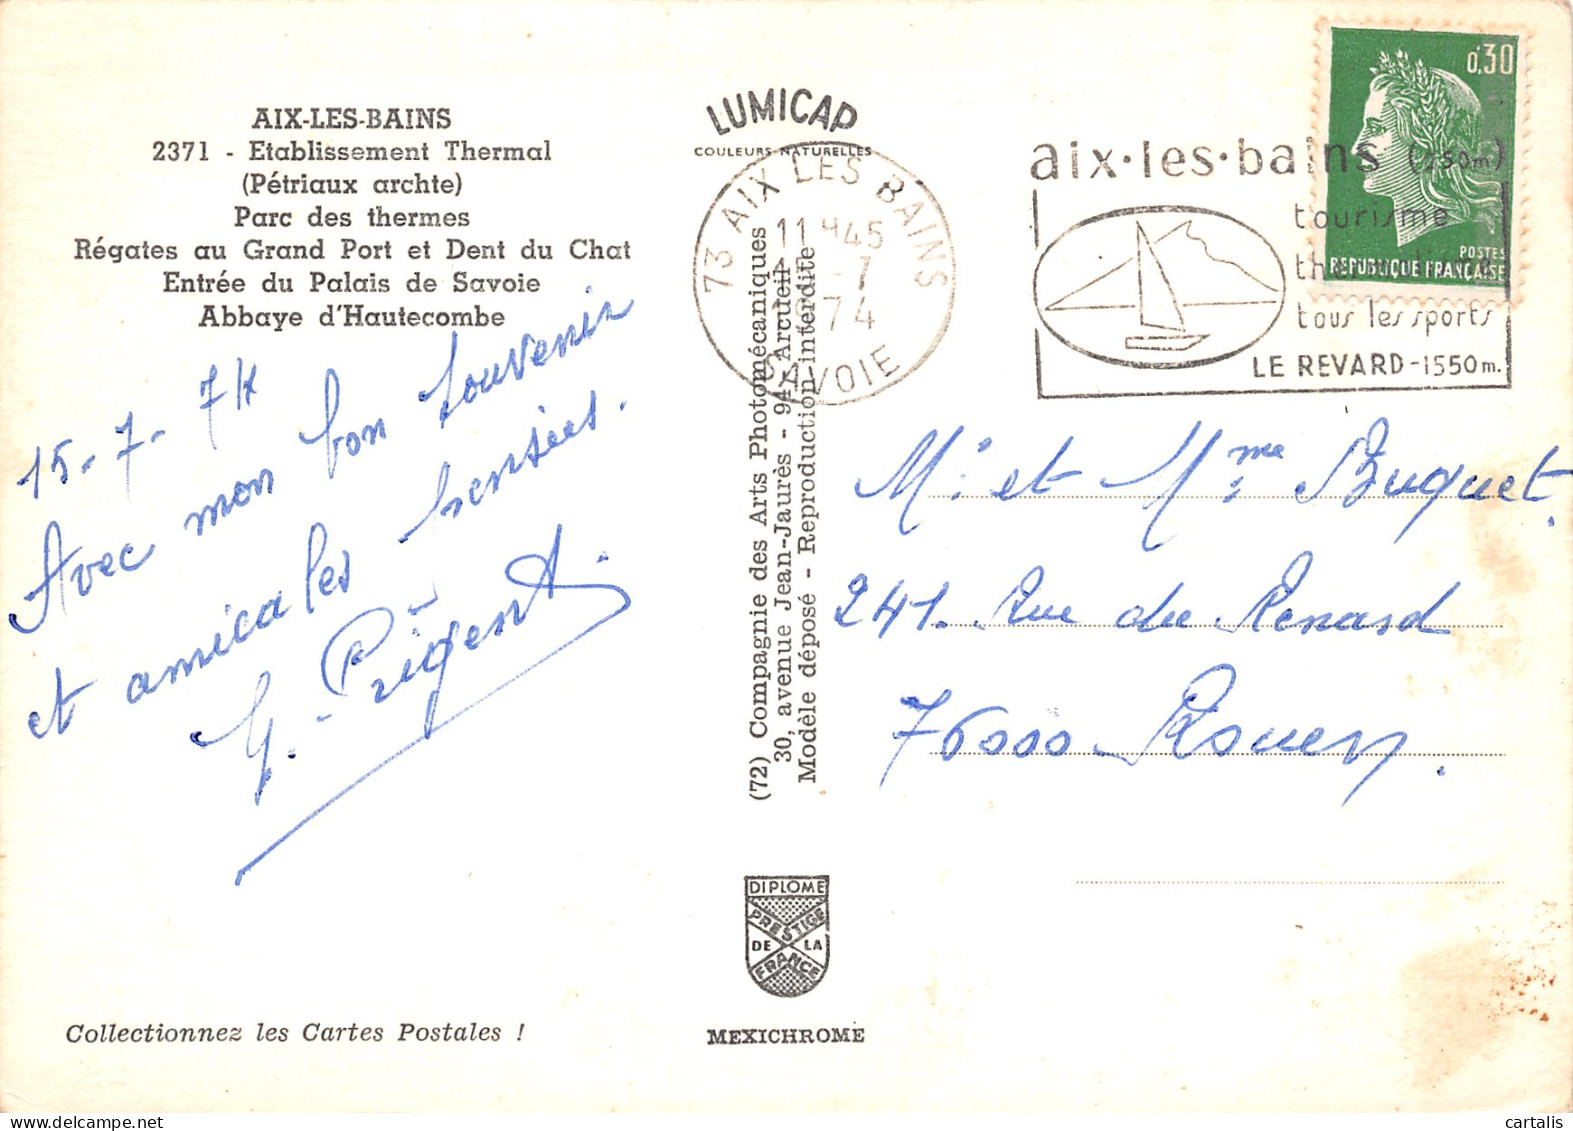 AIX-LES-BAINS
2371 - Etablissement Thermal
(Pétriaux archte)
Parc des thermes
Régates au Grand Port et Dent du Chat
Entrée du Palais de Savoie
Abbaye d'Hautecombe
15-7-74
Avec mon bon souvenir
et amicales pensées.
G. Prigent.
Collectionnez les Cartes Postales !
LUMICAP
COULEURS NATURELLES
73 AIX LES BAINS
11 H 45
-7
74
SAVOIE
(72) Compagnie des Arts Photomécaniques
30, avenue Jean-Jaurès - 94 - Arcueil
Modèle déposé - Reproduction interdite
DIPLOME
PRESTIGE
DE LA
FRANCE
MEXICHROME
0,30
POSTES
REPUBLIQUE FRANÇAISE
aix·les·bains (250m)
tourisme
thermalisme
tous les sports
LE REVARD - 1550m.
Mr. et Mme Buquet.
241. Rue du Renard
76000 - Rouen.
cartalis